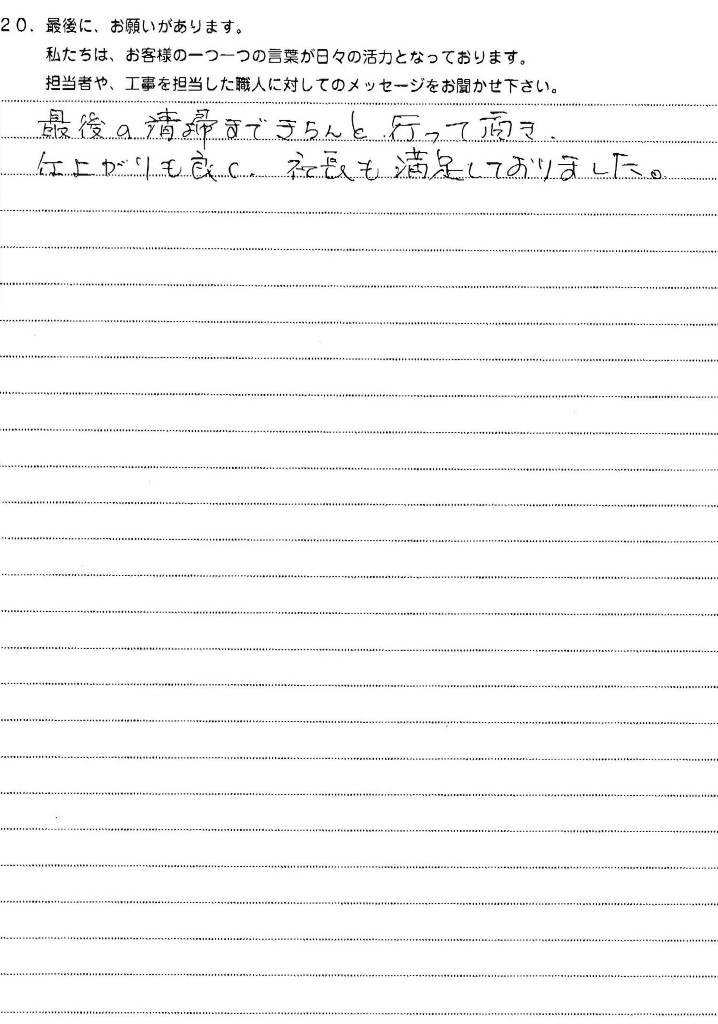 20. 最後に、お願いがあります。
私たちは、お客様の一つ一つの言葉が日々の活力となっております。
担当者や、工事を担当した職人に対してのメッセージをお聞かせ下さい。
最後の清掃まできちんと行って頂き、
仕上がりも良く、社長も満足しておりました。